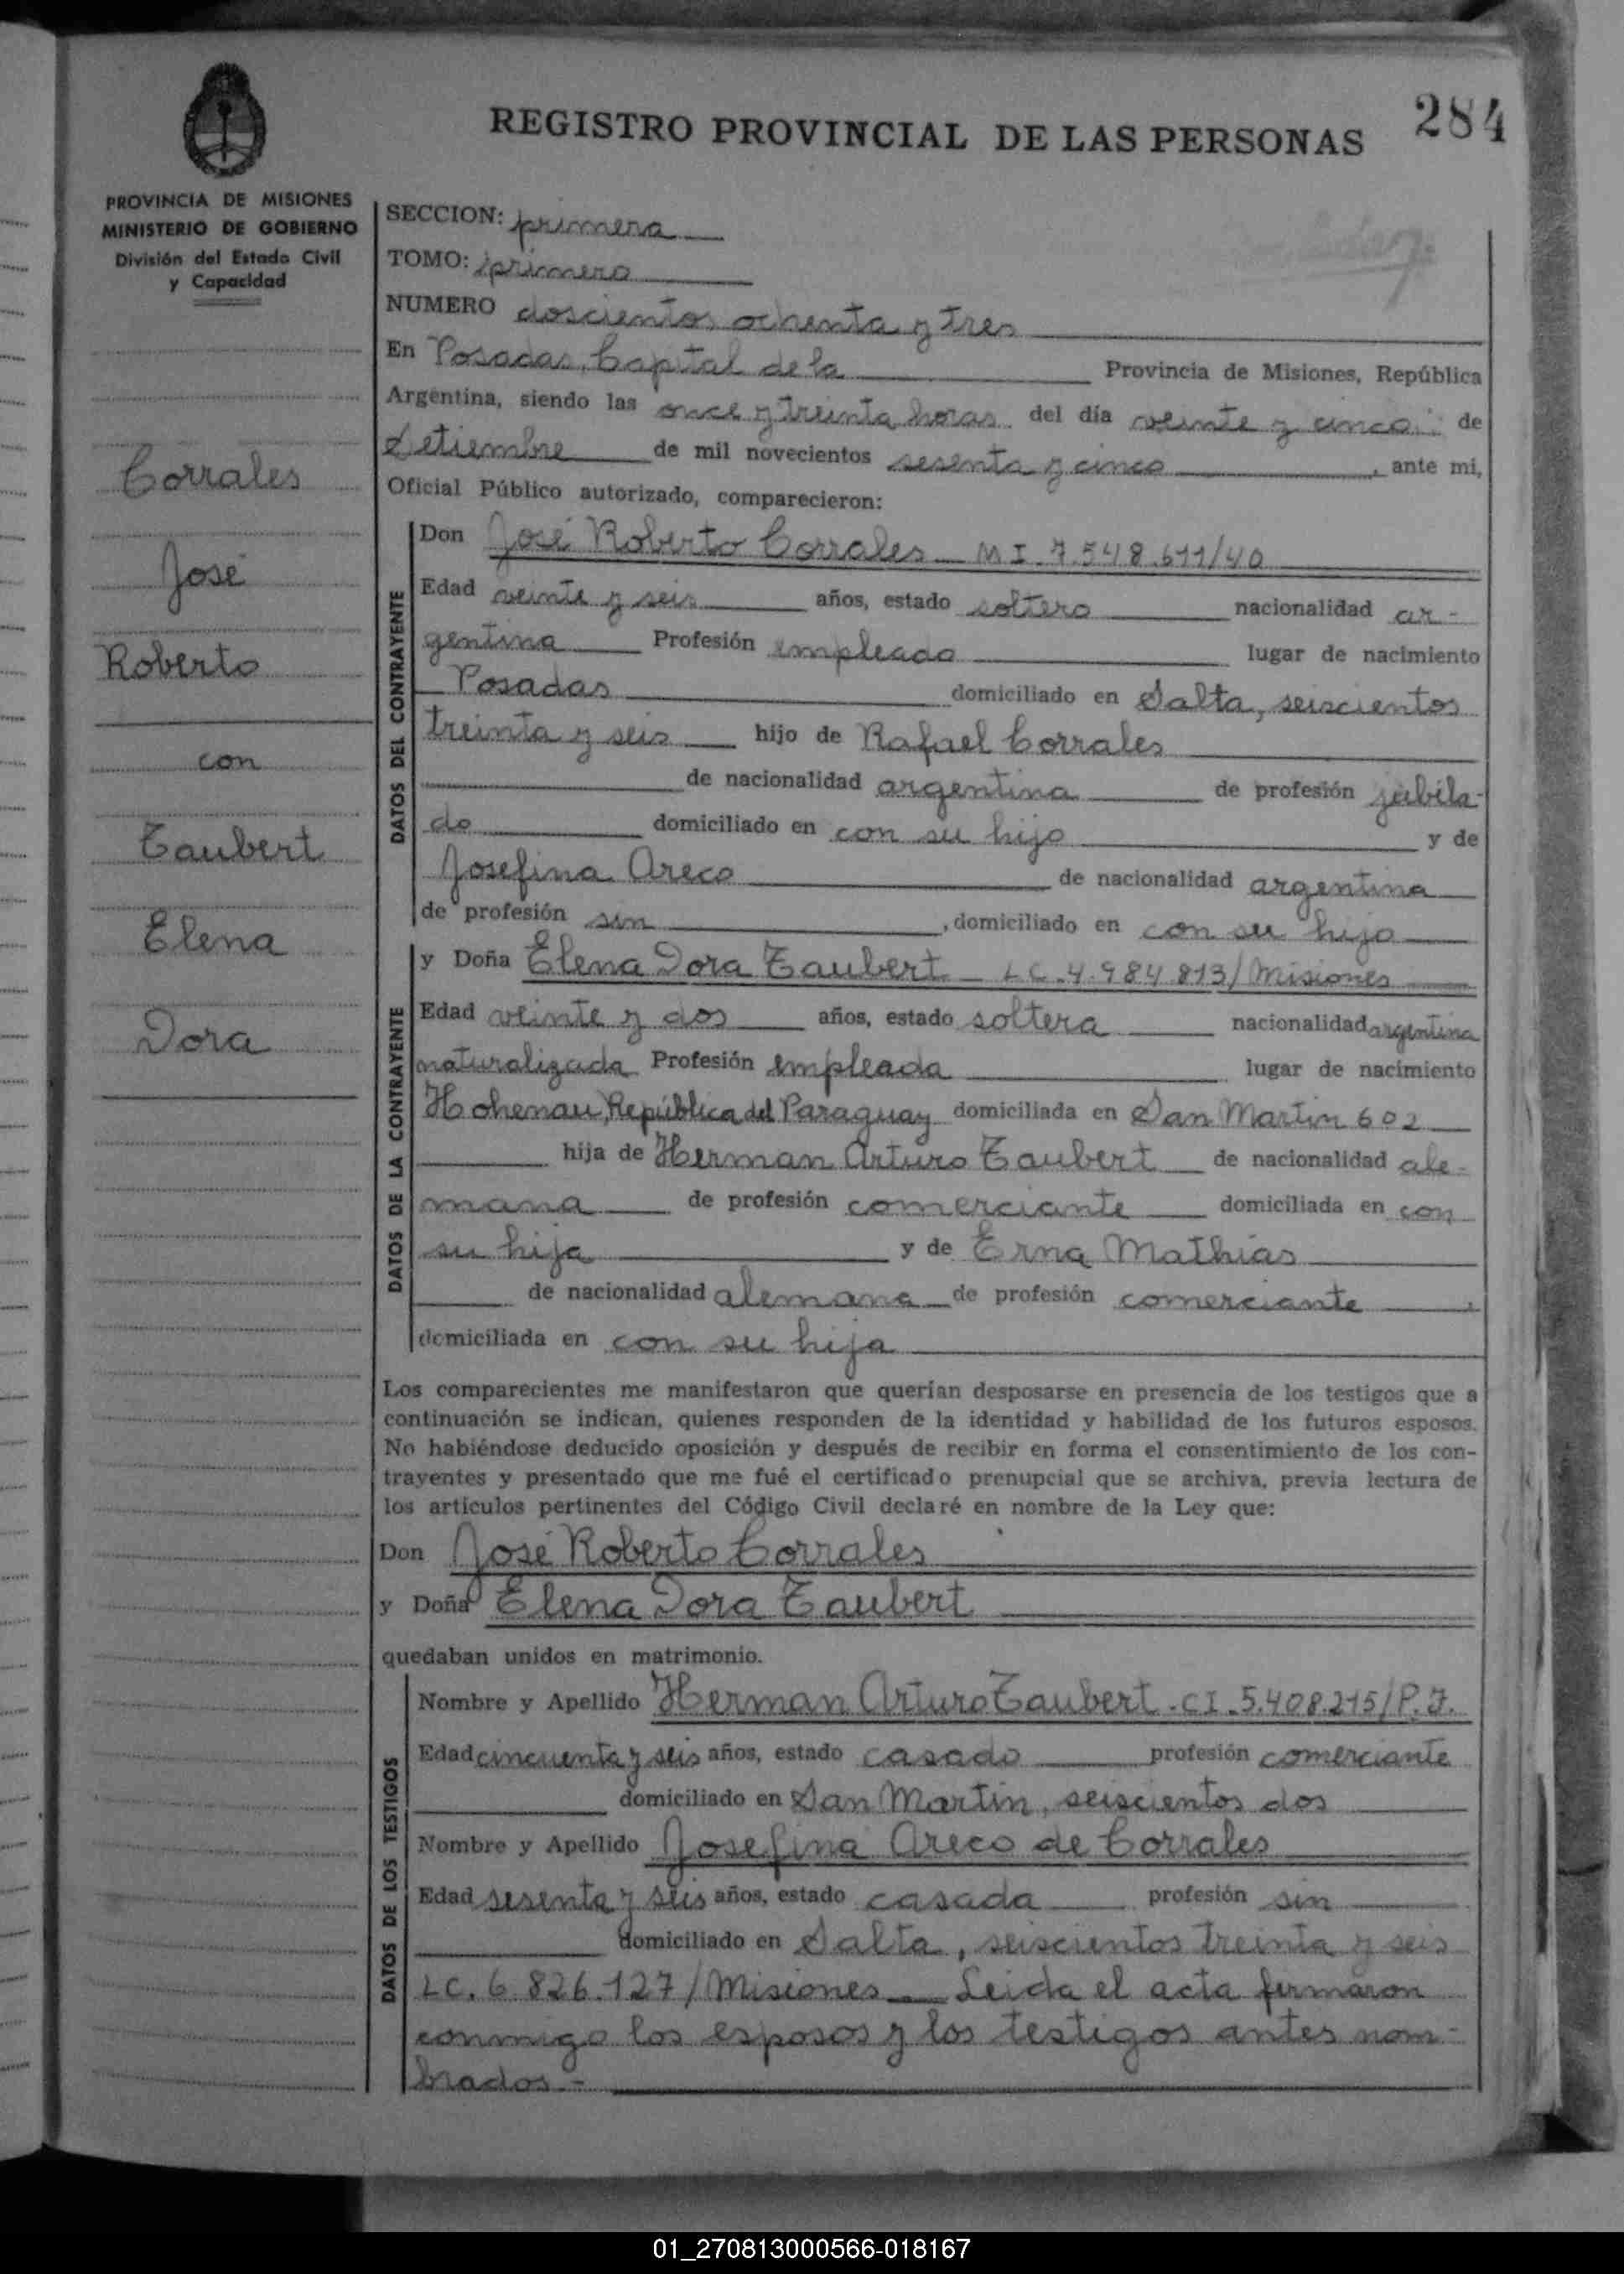 284
REGISTRO PROVINCIAL DE LAS PERSONAS
PROVINCIA DE MISIONES
MINISTERIO DE GOBIERNO
División del Estado Civil
y Capacidad
Corrales
José
Roberto
con
Taubert
Elena
Dora
SECCION: primera
TOMO: primero
NUMERO doscientos ochenta y tres
En Posadas, Capital de la Provincia de Misiones, República
Argentina, siendo las once y treinta horas del día veinte y cinco de
Setiembre de mil novecientos sesenta y cinco, ante mi,
Oficial Público autorizado, comparecieron:
DATOS DEL CONTRAYENTE
Don José Roberto Corrales MI 7.548.611/40
Edad veinte y seis años, estado soltero nacionalidad ar-
gentina Profesión empleado lugar de nacimiento
Posadas domiciliado en Salta, seiscientos
treinta y seis hijo de Rafael Corrales
de nacionalidad argentina de profesión jubila-
do domiciliado en con su hijo y de
Josefina Areco de nacionalidad argentina
de profesión sin, domiciliado en con su hijo
DATOS DE LA CONTRAYENTE
y Doña Elena Dora Taubert LC.4.984.813/Misiones
Edad veinte y dos años, estado soltera nacionalidad argentina
naturalizada Profesión empleada lugar de nacimiento
Hohenau, República del Paraguay domiciliada en San Martin 602
hija de Herman Arturo Taubert de nacionalidad ale-
mana de profesión comerciante domiciliada en con
su hija y de Erna Mathias
de nacionalidad alemana de profesión comerciante,
domiciliada en con su hija
Los comparecientes me manifestaron que querían desposarse en presencia de los testigos que a
continuación se indican, quienes responden de la identidad y habilidad de los futuros esposos.
No habiéndose deducido oposición y después de recibir en forma el consentimiento de los con-
trayentes y presentado que me fué el certificado prenupcial que se archiva, previa lectura de
los artículos pertinentes del Código Civil declaré en nombre de la Ley que:
Don José Roberto Corrales
y Doña Elena Dora Taubert
quedaban unidos en matrimonio.
DATOS DE LOS TESTIGOS
Nombre y Apellido Herman Arturo Taubert.CI.5.408.215/P.F.
Edad cincuenta y seis años, estado casado profesión comerciante
domiciliado en San Martin, seiscientos dos
Nombre y Apellido Josefina Areco de Corrales
Edad sesenta y seis años, estado casada profesión sin
domiciliado en Salta, seiscientos treinta y seis
LC. 6.826.127/Misiones Leida el acta firmaron
conmigo los esposos y los testigos antes nom-
brados.-
01_270813000566-018167